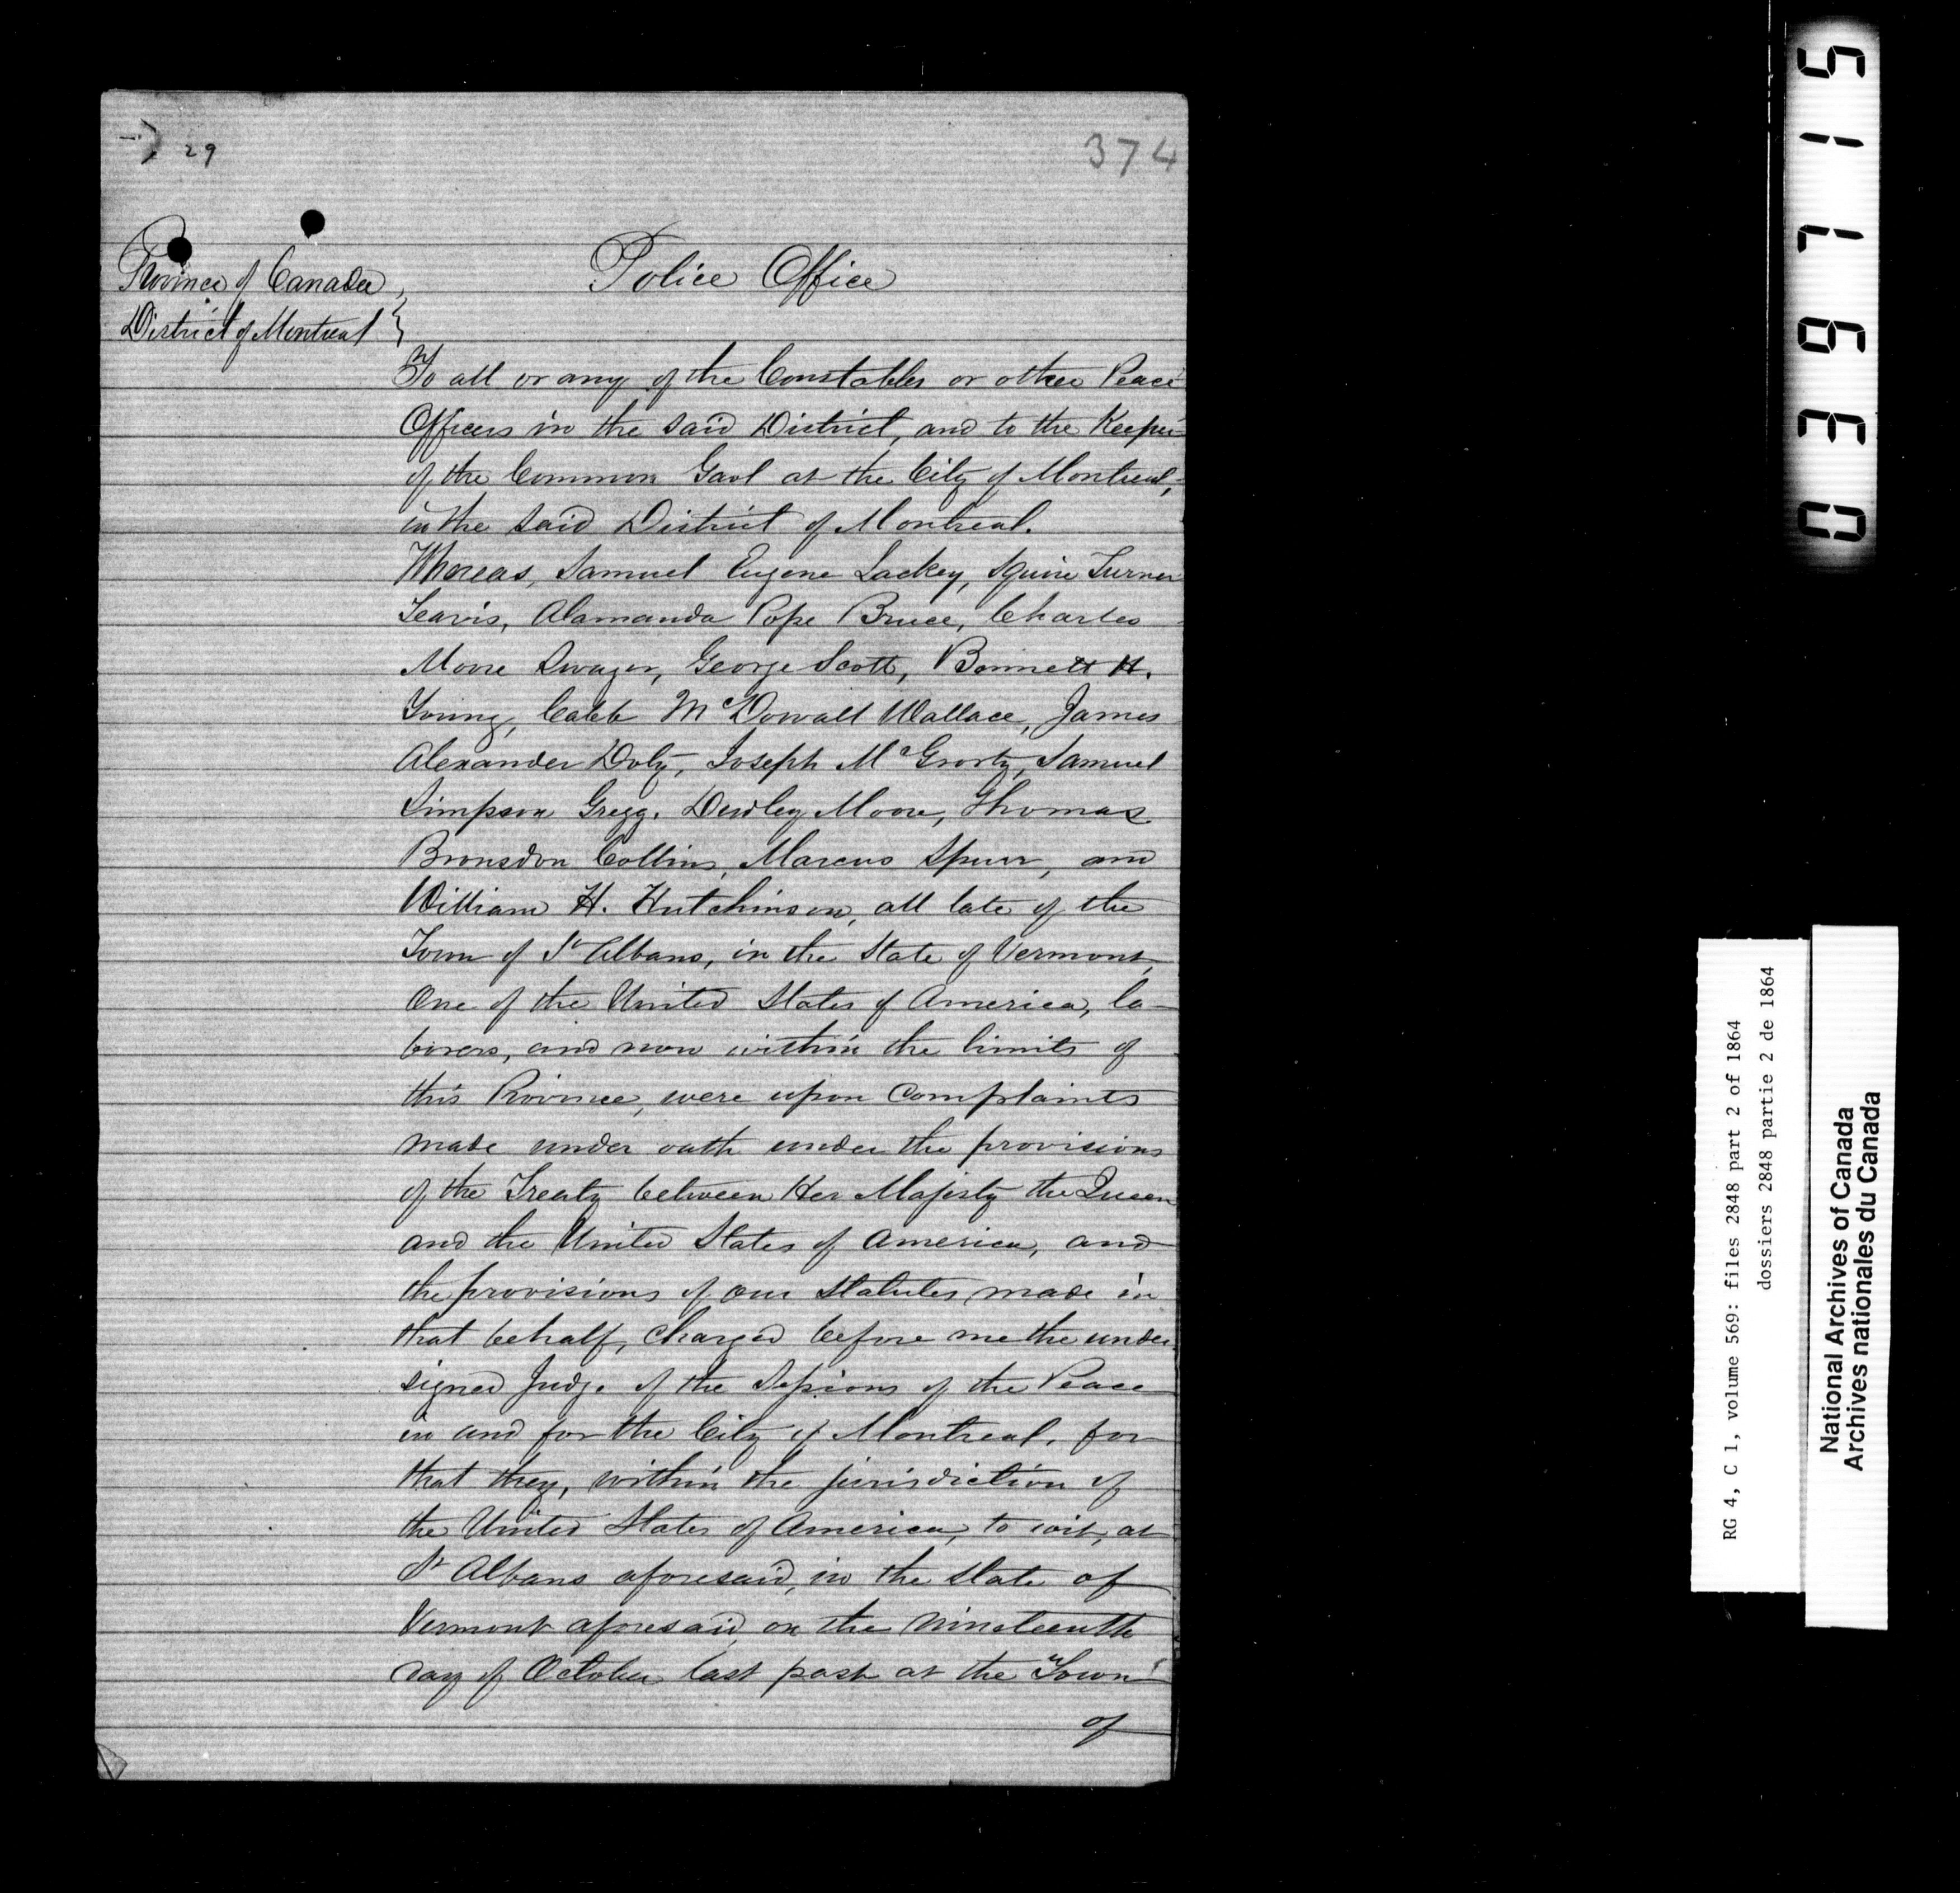 29
374
Province of Canada
District of Montreal
Police Office
To all or any of the Constables or other Peace
Officers in the said District, and to the Keeper
of the Common Gaol at the City of Montreal,
in the said District of Montreal.
Whereas, Samuel Eugene Lackey, Squire Turner
Teavis, Alamanda Pope Bruce, Charles
Moore Swager, George Scott, Bennett H.
Young, Caleb McDowall Wallace, James
Alexander Doty, Joseph McGrorty, Samuel
Simpson Gregg, Dudley Moore, Thomas
Bronsdon Collins, Marcus Spurr, and
William H. Hutchinson, all late of the
Town of St Albans, in the State of Vermont,
One of the United States of America, la-
borers, and now within the limits of
this Province, were upon complaints
made under oath under the provisions
of the Treaty between Her Majesty the Queen
and the United States of America, and
the provisions of our Statutes made in
that behalf, charged before me the under
signed Judge of the Sessions of the Peace
in and for the City of Montreal, for
that they, within the jurisdiction of
the United States of America, to wit, at
St Albans aforesaid, in the State of
Vermont aforesaid, on the Nineteenth
day of October last past at the Town
of
039715
RG 4, C 1, volume 569: files 2848 part 2 of 1864
dossiers 2848 partie 2 de 1864
National Archives of Canada
Archives nationales du Canada